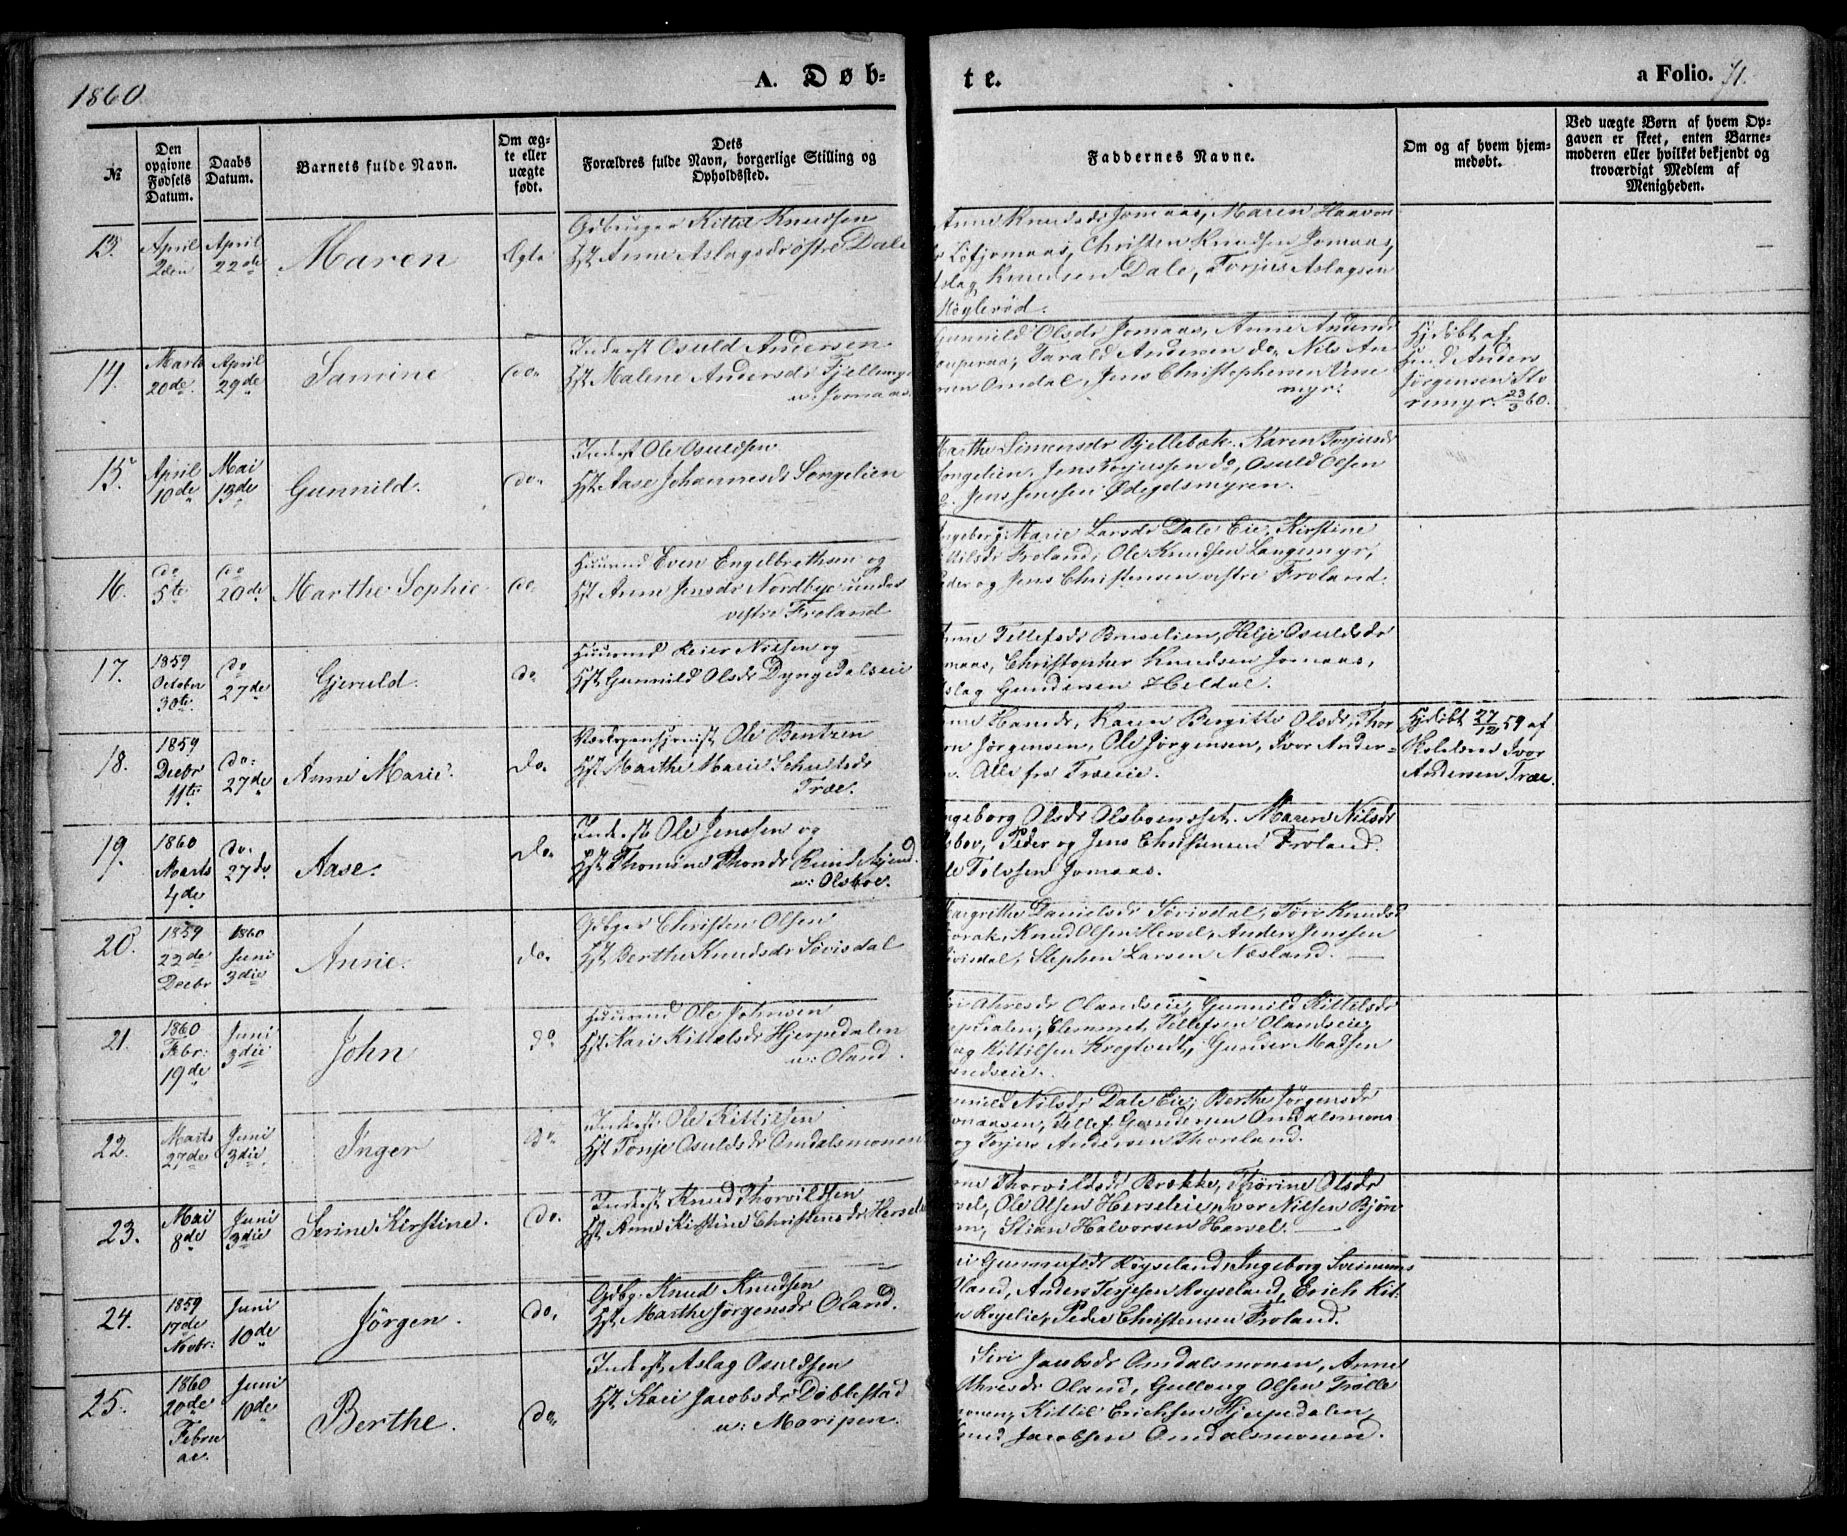 1860.
A. Døb-
te.
a Folio. 71.
№
Den opgivne Fødsels Datum.
Daabs Datum.
Barnets fulde Navn.
Om ægte eller uægte født.
Dets Forældres fulde Navn, borgerlige Stilling og Opholdssted.
Faddernes Navne.
Om og af hvem hjemmedøbt.
Ved uægte Børn af hvem Opgaven er skeet, enten Barnemoderen eller hvilket bekjendt og troværdigt Medlem af Menigheden.
13. April 2den April 22de Maren Ægte
Gdbruger Kittil Knudsen
Hst Anne Aslagsdr østre Dale
Anne Knudsdr Jomaas, Maren Haavor
dr Løfjomaas, Christen Knudsen Jomaas,
Aslag Knudsen Dale, Torjus Aslagsen
14. Marts 20de April 29de Samine do.
Inderst Osuld Andersen
Hst Malene Andersdr Fjellemyr
u: Jomaas
Gunnild Olsdr Jomaas, Anne Andersdr
Tarald Andersen do, Nils An
Omdal, Jens Christophersen Vene
myr.
Hjdøbt af
Husmd Anders
Jørgensen Sto
remyr. 23/3 60.
15. April 10de Mai 13de Gunnild. do.
Inderst Ole Osuldsen
Hst Aase Johannesdr Songelien
Marthe Simensdr Bjellebæk. Karen Torjusdr
Songelien, Jens Torjussen do, Osuld Olsen
do. Jens Jensen Ødegdsmyren.
16. do 5te do 20de Marthe Sophie do.
Huusmd Even Engelbrethsen og
Hst Anne Jensdr Nordbye under
vestre Froland
Ingeborg Marie Larsdr Dale Eie, Kirstine
Kittilsdr Froland, Ole Knudsen Langemyr,
Peder og Jens Christensen vestre Froland.
17. 1859 October 30te do 27de Gjeruld. do
Huusmd Reier Nilsen og
Hst Gunnild Olsdr Dyngedalseie
Anne Tellefsdr Buselien, Helje Osuldsdr
Jomaas, Christopher Knudsen Jomaas,
Aslag Gundersen Heldal.
18. 1859 Decbr 11te do: 27de Anne Marie. do.
Ole Bentzen
Hst Marthe Marie Schultsdr
Træe.
Anne Hansdr, Karen Birgitte Olsdr, Thor
Jørgensen, Ole Jørgensen, Ivar Ander-
Alle fra Træeie.
Hjdøbt 27/12 59 af
Skolelær Ivar
Andersen Træe.
19. 1860 Marts 4de do. 27de Aase. do.
Inderst Ole Jensen og
Hst Thomine
u: Olsboe.
Ingeborg Olsdr Olsboenset. Maren Nilsdr
Olsboe, Peder og Jens Christensen Froland.
Ole Tolvsen Jomaas.
20. 1859 22de Decbr 1860 Juni 3die Anne. do.
Gdbgr Christen Olsen
Hst Berthe Knudsdr Søvisdal
Margrethe Danielsdr Søvisdal, Tøri Knudsd
Knud Olsen Hersel, Anders Jenssen
Søvisdal, Stephen Larsen Næsland.
21. 1860 Febr: 19de Juni 3die John do
Huusmd Ole Johnsen
Hst Kari Kittelsdr Hjerpedalen
u: Oland.
Ahresdr Olandseie, Gunnild Kittelsdr
Hjerpedalen, Clemmet Tellefsen Olandseie,
Aslag Kittilsen Krogtvedt, Gunder Madsen
Olandseie.
22. Marts 27de Juni 3die Inger do.
Inderst Ole Kittilsen
Hst Tonje Osuldsdr Omdalsmonen
Gunnild Nilsdr Dale Eie, Berthe Jørgensdr
Tellef Gundersen Omdalsmone
og Torjus Andersen Thoreland.
23. Mai 8de Juni 3die Serine Kirstine. do.
Inderst Knud Thorvildsen
Hst Anne Kirstine Christensdr Hersel
Thorvildsdr Brække, Thorine Olsdr
Hersel, Ole Olsen Herseleie, Ivar Nilsen Bjør
Stian Halvorsen Hersel.
24. 1859 17de Novbr: Juni 10de Jørgen. do.
Gdbg. Knud Knudsen
Hst Marthe Jørgensdr Oland.
Gunnulfsdr Røyseland, Ingeborg Sveinuns
Oland, Anders Terjesen Røyseland, Erich Kit
Peder Christensen Froland.
25. 1860 20de Februar. Juni 10de Berthe. do.
Inderst Aslag Osuldsen
Hst Kari Jacobsdr Døblestad
u: Maripen.
Siri Jacobsdr Omdalsmonen, Anne
Ahresdr Oland, Gullong Olsen Trolle
monen, Kittil Erichsen Hjerpedalen,
Knud Jacobsen Omdalsmonen.